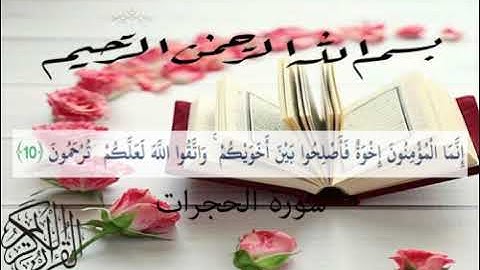 بسم الله الرحمن الرحيم
إِنَّمَا الْمُؤْمِنُونَ إِخْوَةٌ فَأَصْلِحُوا بَيْنَ أَخَوَيْكُمْ ۚ وَاتَّقُوا اللَّهَ لَعَلَّكُمْ تُرْحَمُونَ ﴿10﴾
سورة الحجرات
القرآن الكريم